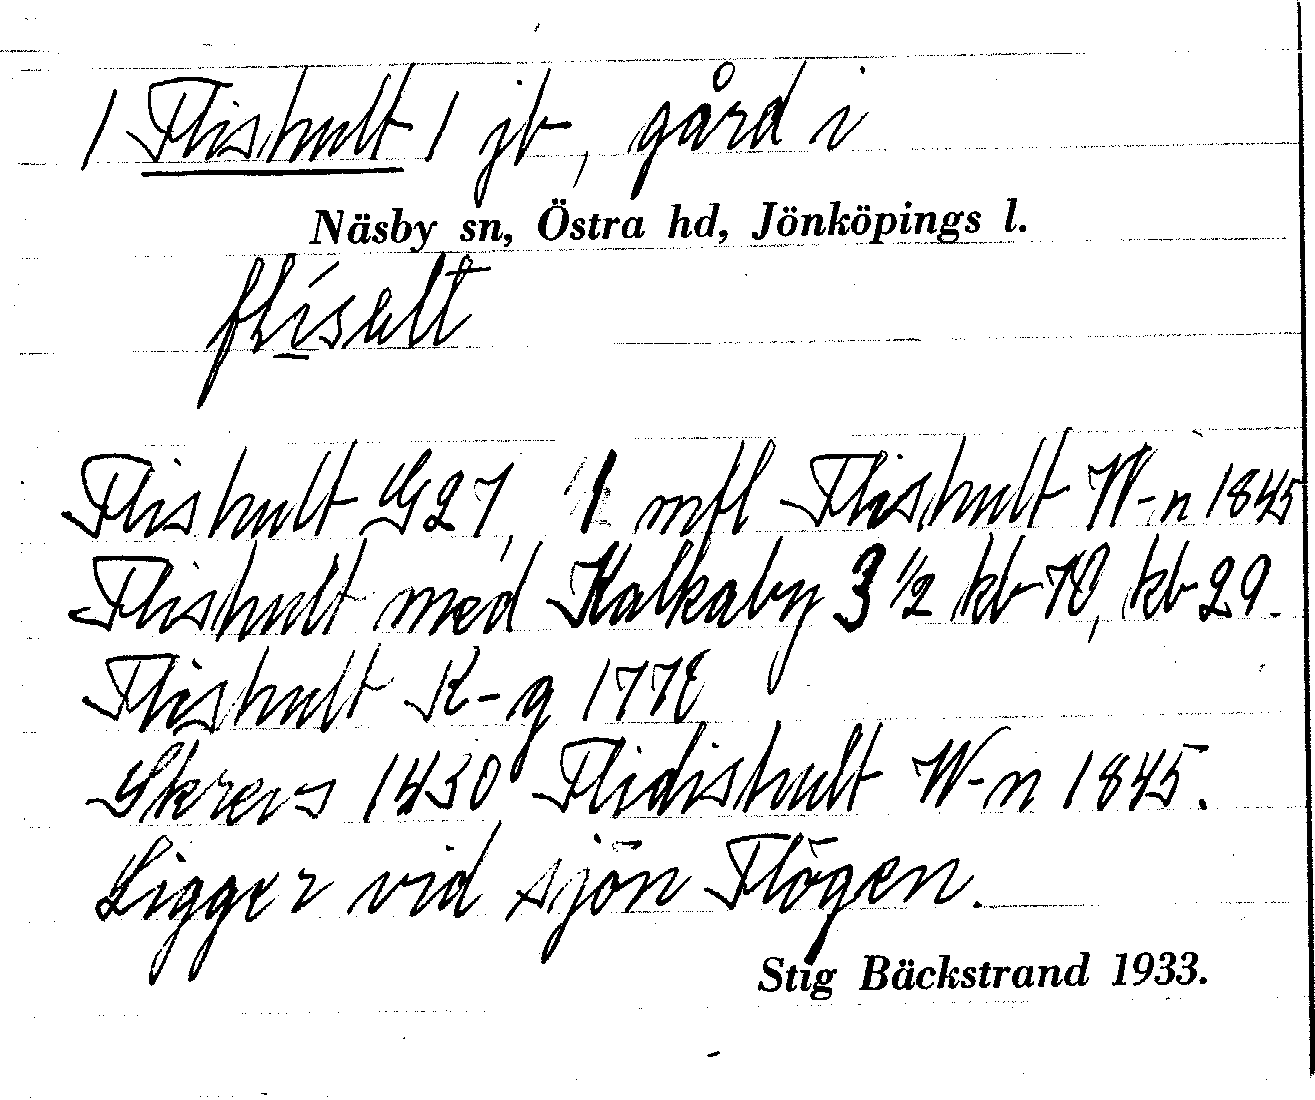 / Flishult / jb, gård i
Näsby sn, Östra hd, Jönköpings l.
flíselt
Flishult G27, 1 mtl Flishult W-n 1845
Flishult med Kalkaby 3 ½ kb 78, kb 29.
Flishult K-g 1778
Skrevs 1430 Flidishult W-n 1845.
Ligger vid sjön Flögen.
Stig Bäckstrand 1933.